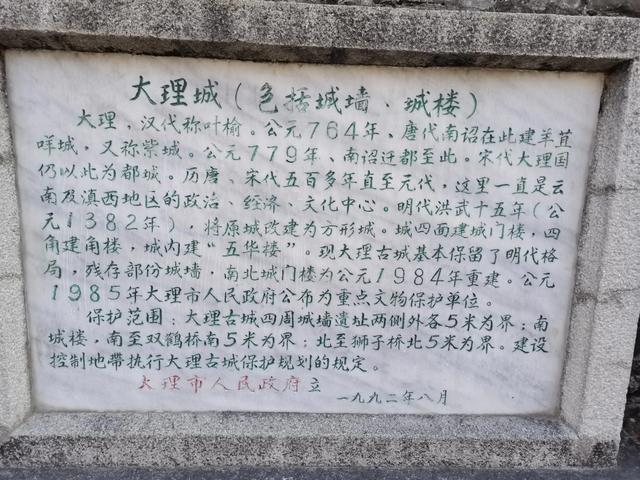 大理城(包括城墙、城楼)
大理，汉代称叶榆。公元764年、唐代南诏在此建羊苴
咩城，又称紫城。公元779年、南诏迁都至此。宋代大理国
仍以此为都城。历唐、宋代五百多年直至元代，这里一直是云
南及滇西地区的政治、经济、文化中心。明代洪武十五年(公
元1382年)，将原城改建为方形城。城四面建城门楼，四
角建角楼，城内建“五华楼”。现大理古城基本保留了明代格
局，残存部份城墙，南北城门楼为公元1984年重建。公元
1985年大理市人民政府公布为重点文物保护单位。
保护范围：大理古城四周城墙遗址两侧外各5米为界；南
城楼，南至双鹤桥南5米为界；北至狮子桥北5米为界。建设
控制地带执行大理古城保护规划的规定。
大理市人民政府立
一九九二年八月